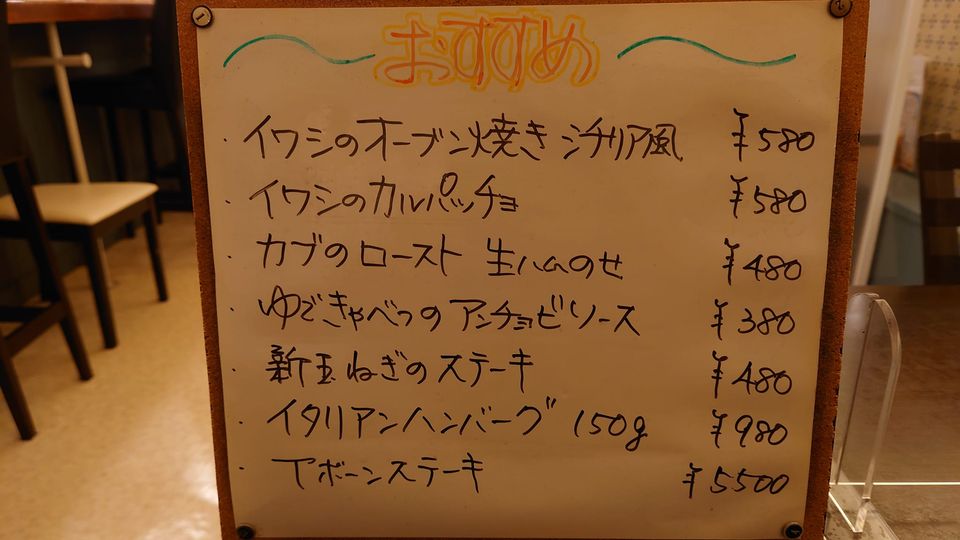 おすすめ
・イワシのオーブン焼き シチリア風 ¥580
・イワシのカルパッチョ ¥580
・カブのロースト 生ハムのせ ¥480
・ゆできゃべつのアンチョビソース ¥380
・新玉ねぎのステーキ ¥480
・イタリアンハンバーグ 150g ¥980
・Tボーンステーキ ¥5500